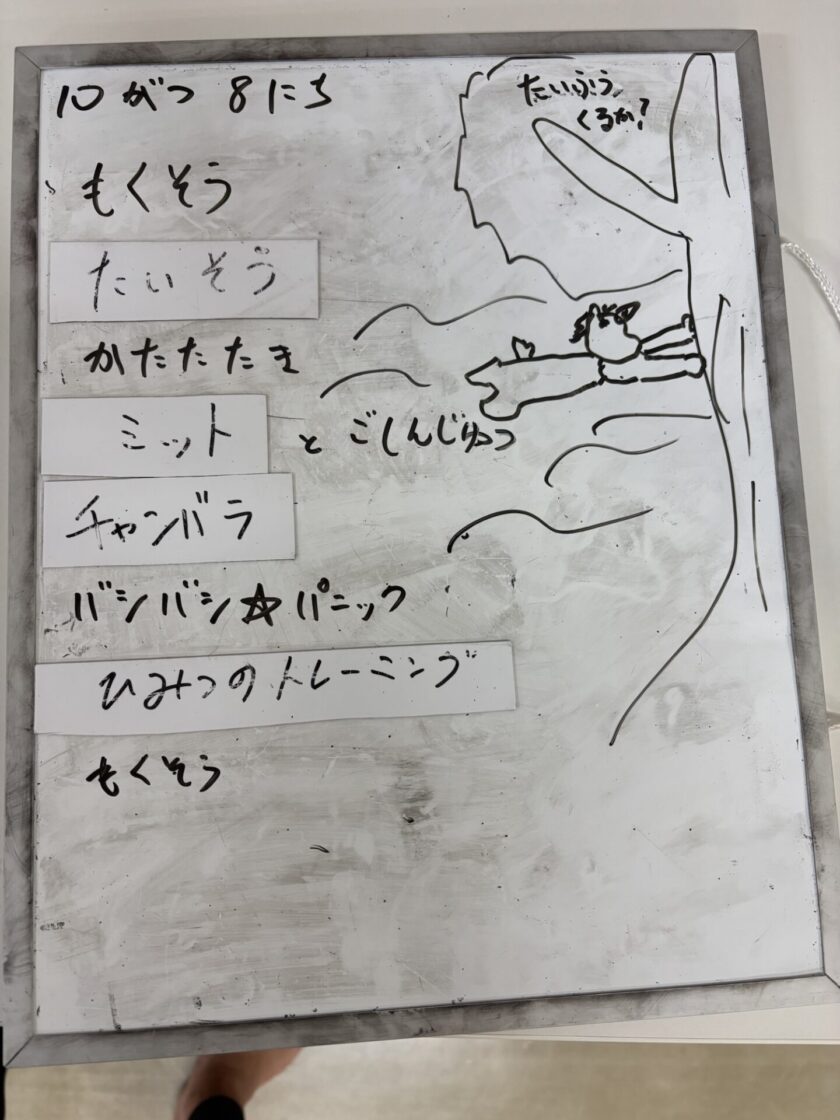 10がつ 8にち
たいふう
くるか?
もくそう
たいそう
かたたたき
ミット と ごしんじゅつ
チャンバラ
バシバシ☆パニック
ひみつのトレーニング
もくそう